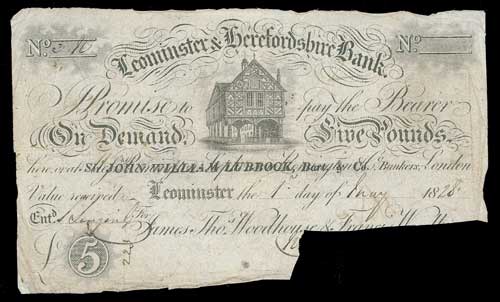 No. No.
Leominster & Herefordshire Bank.
I Promise to pay the Bearer
On Demand, Five Pounds,
here, or at Sir JOHN WILLIAM LUBBOCK, Bart. & Co. Bankers, London
Value received Leominster the 1 day of May 182
Entd. For
James Thos. Woodhouse & Francis
£ 5